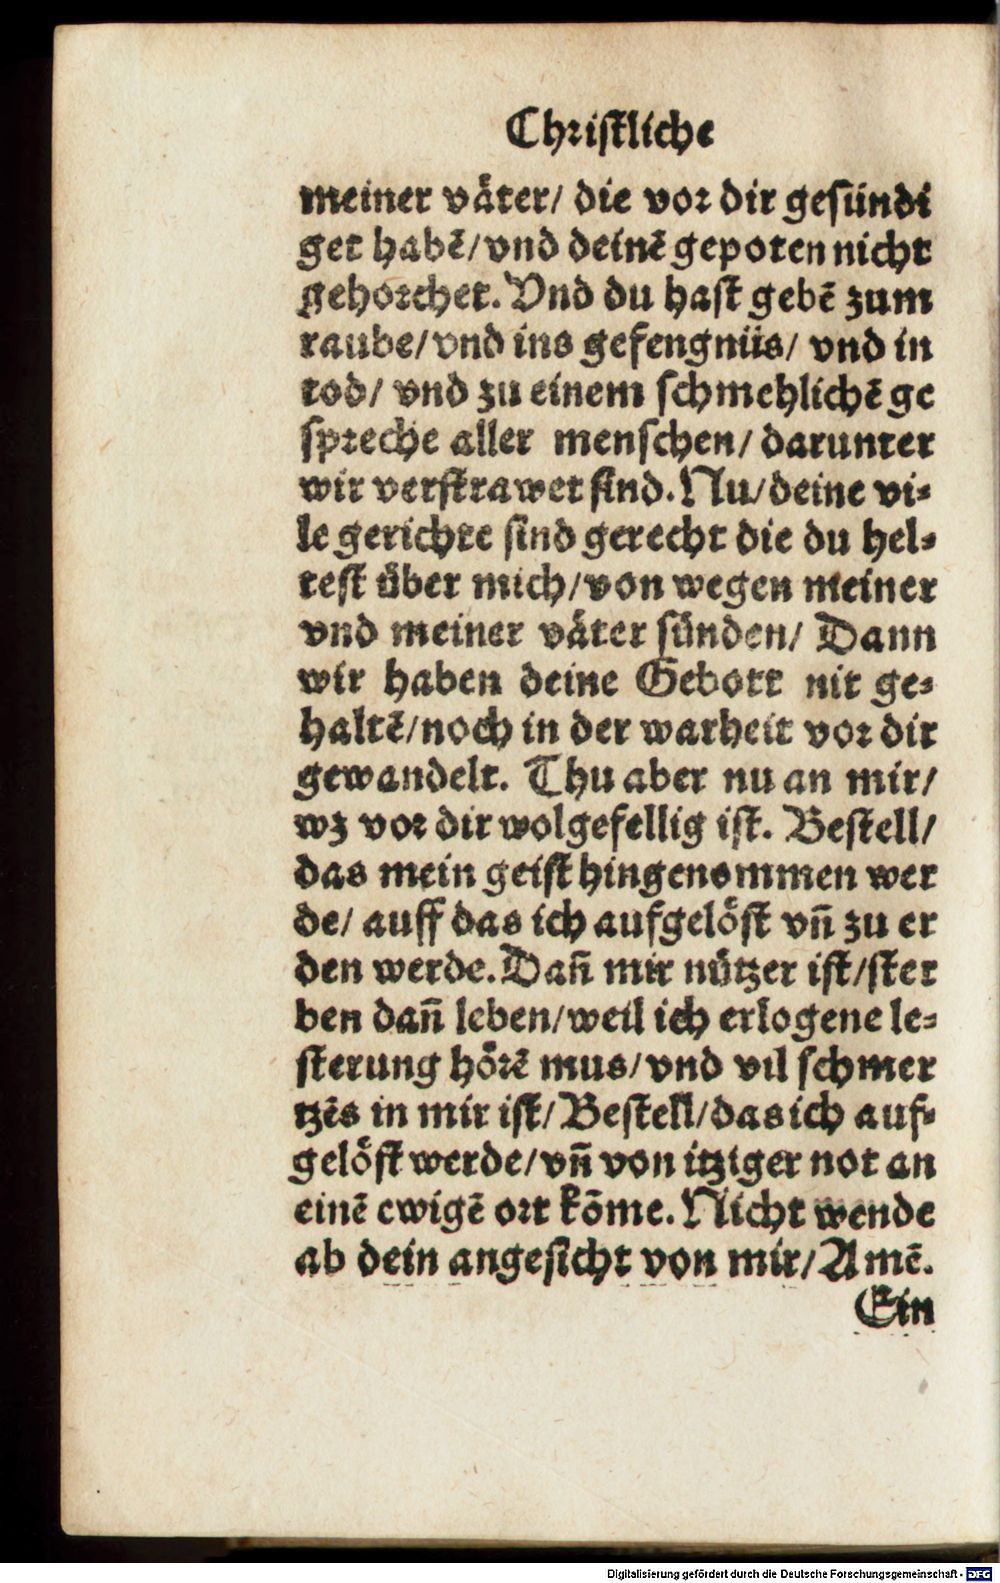 Christliche
meiner väter/ die vor dir gesündi
get habē/ vnd deinē gepoten nicht
gehorchet. Vnd du hast gebē zum
raube/ vnd ins gefengniis/ vnd in
tod/ vnd zu einem schmehlichē ge
spreche aller menschen/ darunter
wir verstrawet sind. Nu/ deine vi-
le gerichte sind gerecht die du hel-
test über mich/ von wegen meiner
vnd meiner väter sünden/ Dann
wir haben deine Gebott nit ge-
haltē/ noch in der warheit vor dir
gewandelt. Thu aber nu an mir/
wz vor dir wolgefellig ist. Bestell/
das mein geist hingenommen wer
de/ auff das ich aufgelöst vñ zu er
den werde. Dañ mir nützer ist/ ster
ben dañ leben/ weil ich erlogene le-
sterung hörē mus/ vnd vil schmer
tzēs in mir ist/ Bestell/ das ich auf-
gelöst werde/ vñ von itziger not an
einē ewigē ort kōme. Nicht wende
ab dein angesicht von mir/ Amē.
Ein
Digitalisierung gefördert durch die Deutsche Forschungsgemeinschaft - DFG